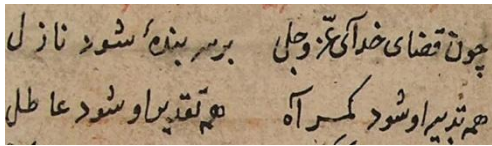 چون قضای خدآی عزّ وجلی برسر بندهٔ شود نازل
هم تدبیر او شود کمراه هم تقدیر او شود عاطل